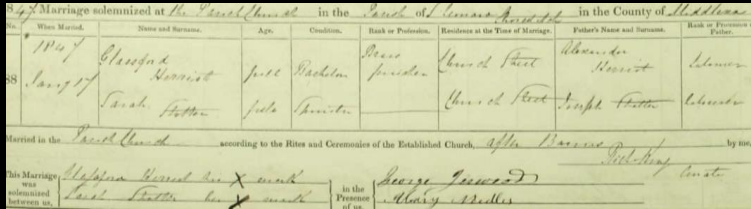 1847 Marriage solemnized at the Parish Church in the Parish of S. Leonard Shoreditch in the County of Middlesex
No. When Married. Name and Surname. Age. Condition. Rank or Profession. Residence at the Time of Marriage. Father's Name and Surname. Rank or Profession of Father.
88 1847 Jany 17 Glassford Herriot full Bachelor Brass finisher Church Street Alexander Herriot Labourer
Sarah Spinster Church Street Joseph Labourer
Married in the Parish Church according to the Rites and Ceremonies of the Established Church, after Banns by me,
Curate
This Marriage was solemnized between us, Glassford Herriot his X mark
Sarah her X mark
in the Presence of us, George
Mary Medler